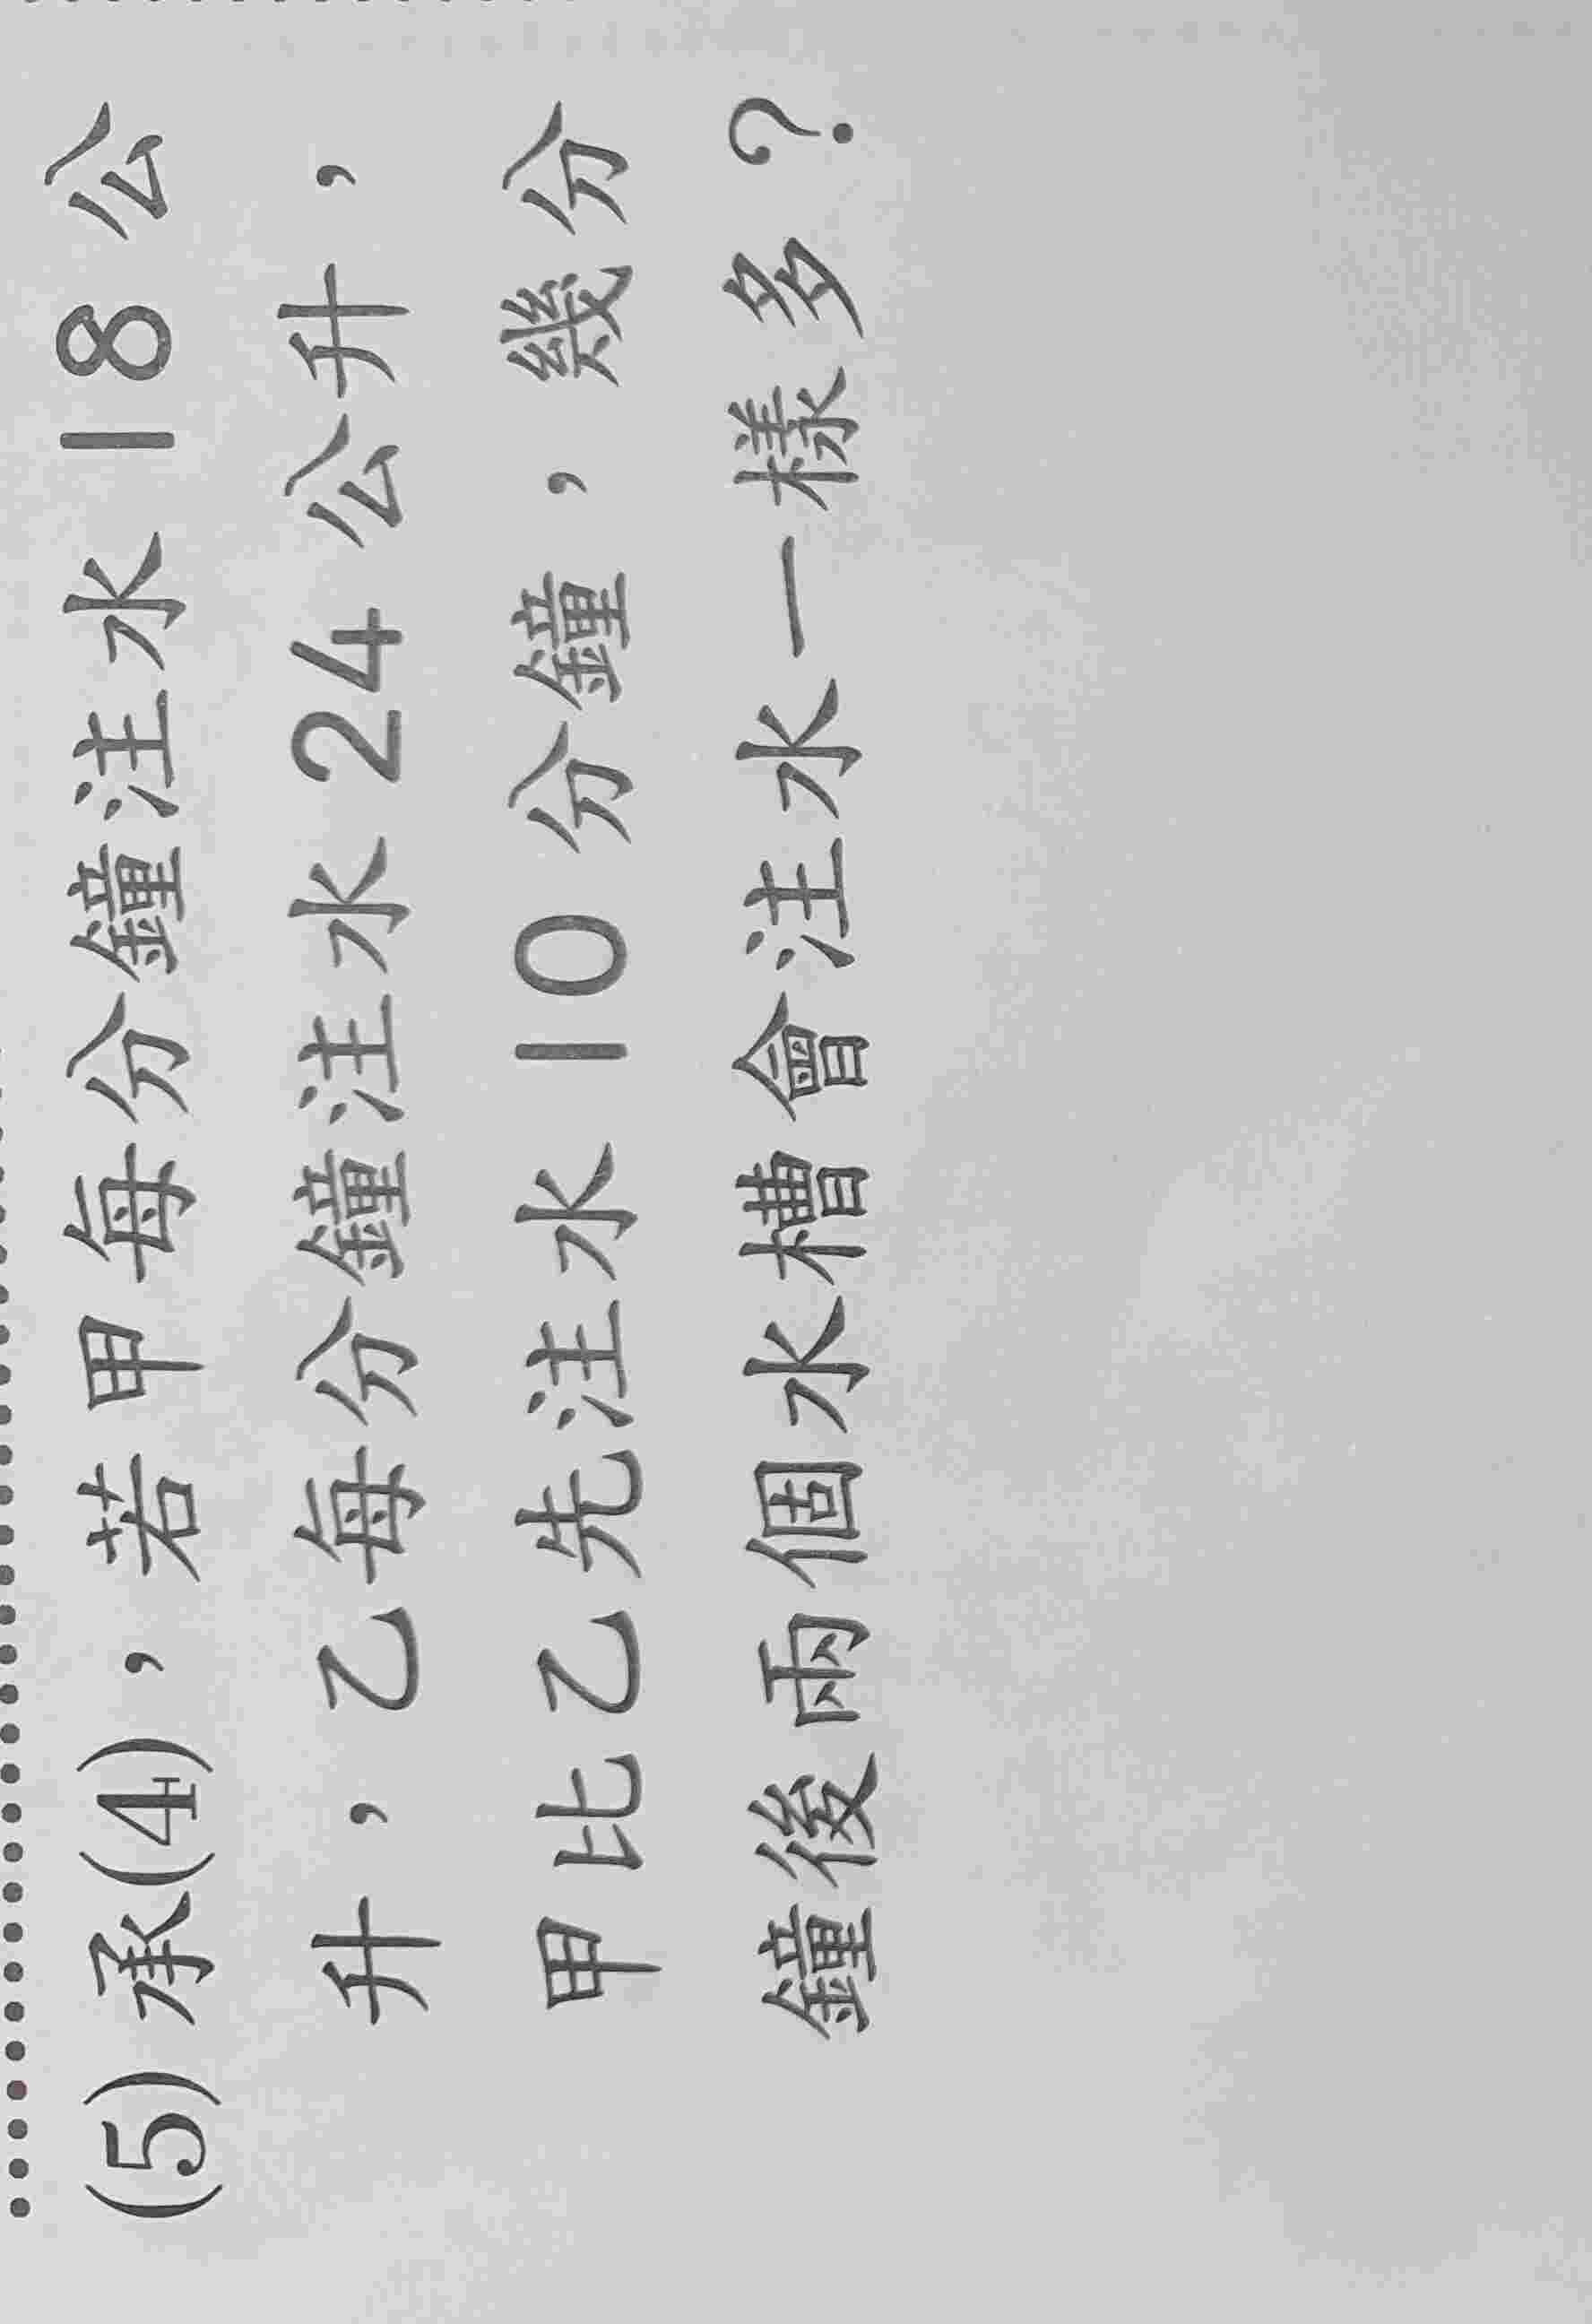 (5) 承(4)，若甲每分鐘注水 18 公
升，乙每分鐘注水 24 公升，
甲比乙先注水 10 分鐘，幾分
鐘後兩個水槽會注水一樣多？